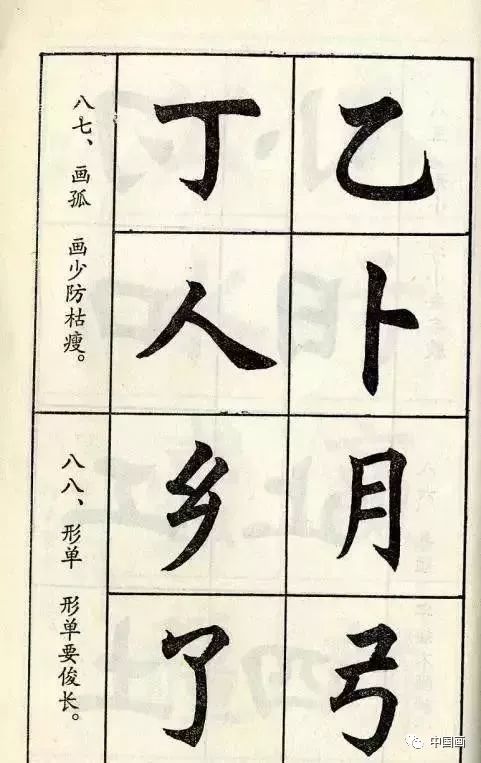 八七、画孤　画少防枯瘦。
丁 乙
人 卜
八八、形单　形单要俊长。
乡 月
了 弓
中国画